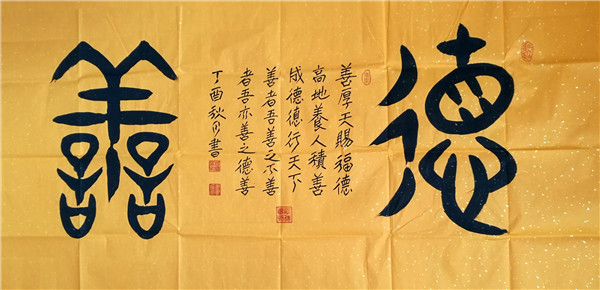 德
善厚天賜福德
高地養人積善
成德德行天下
善者吾善之不善
者吾亦善之德善
丁酉秋月書
善